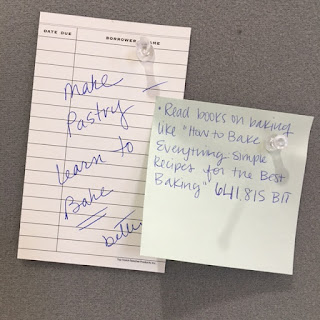 DATE DUE
make
Pastry
Learn to
Bake
• Read books on baking
like "How to Bake
Everything Simple
Recipes for the Best
Baking" 641.815 BIT